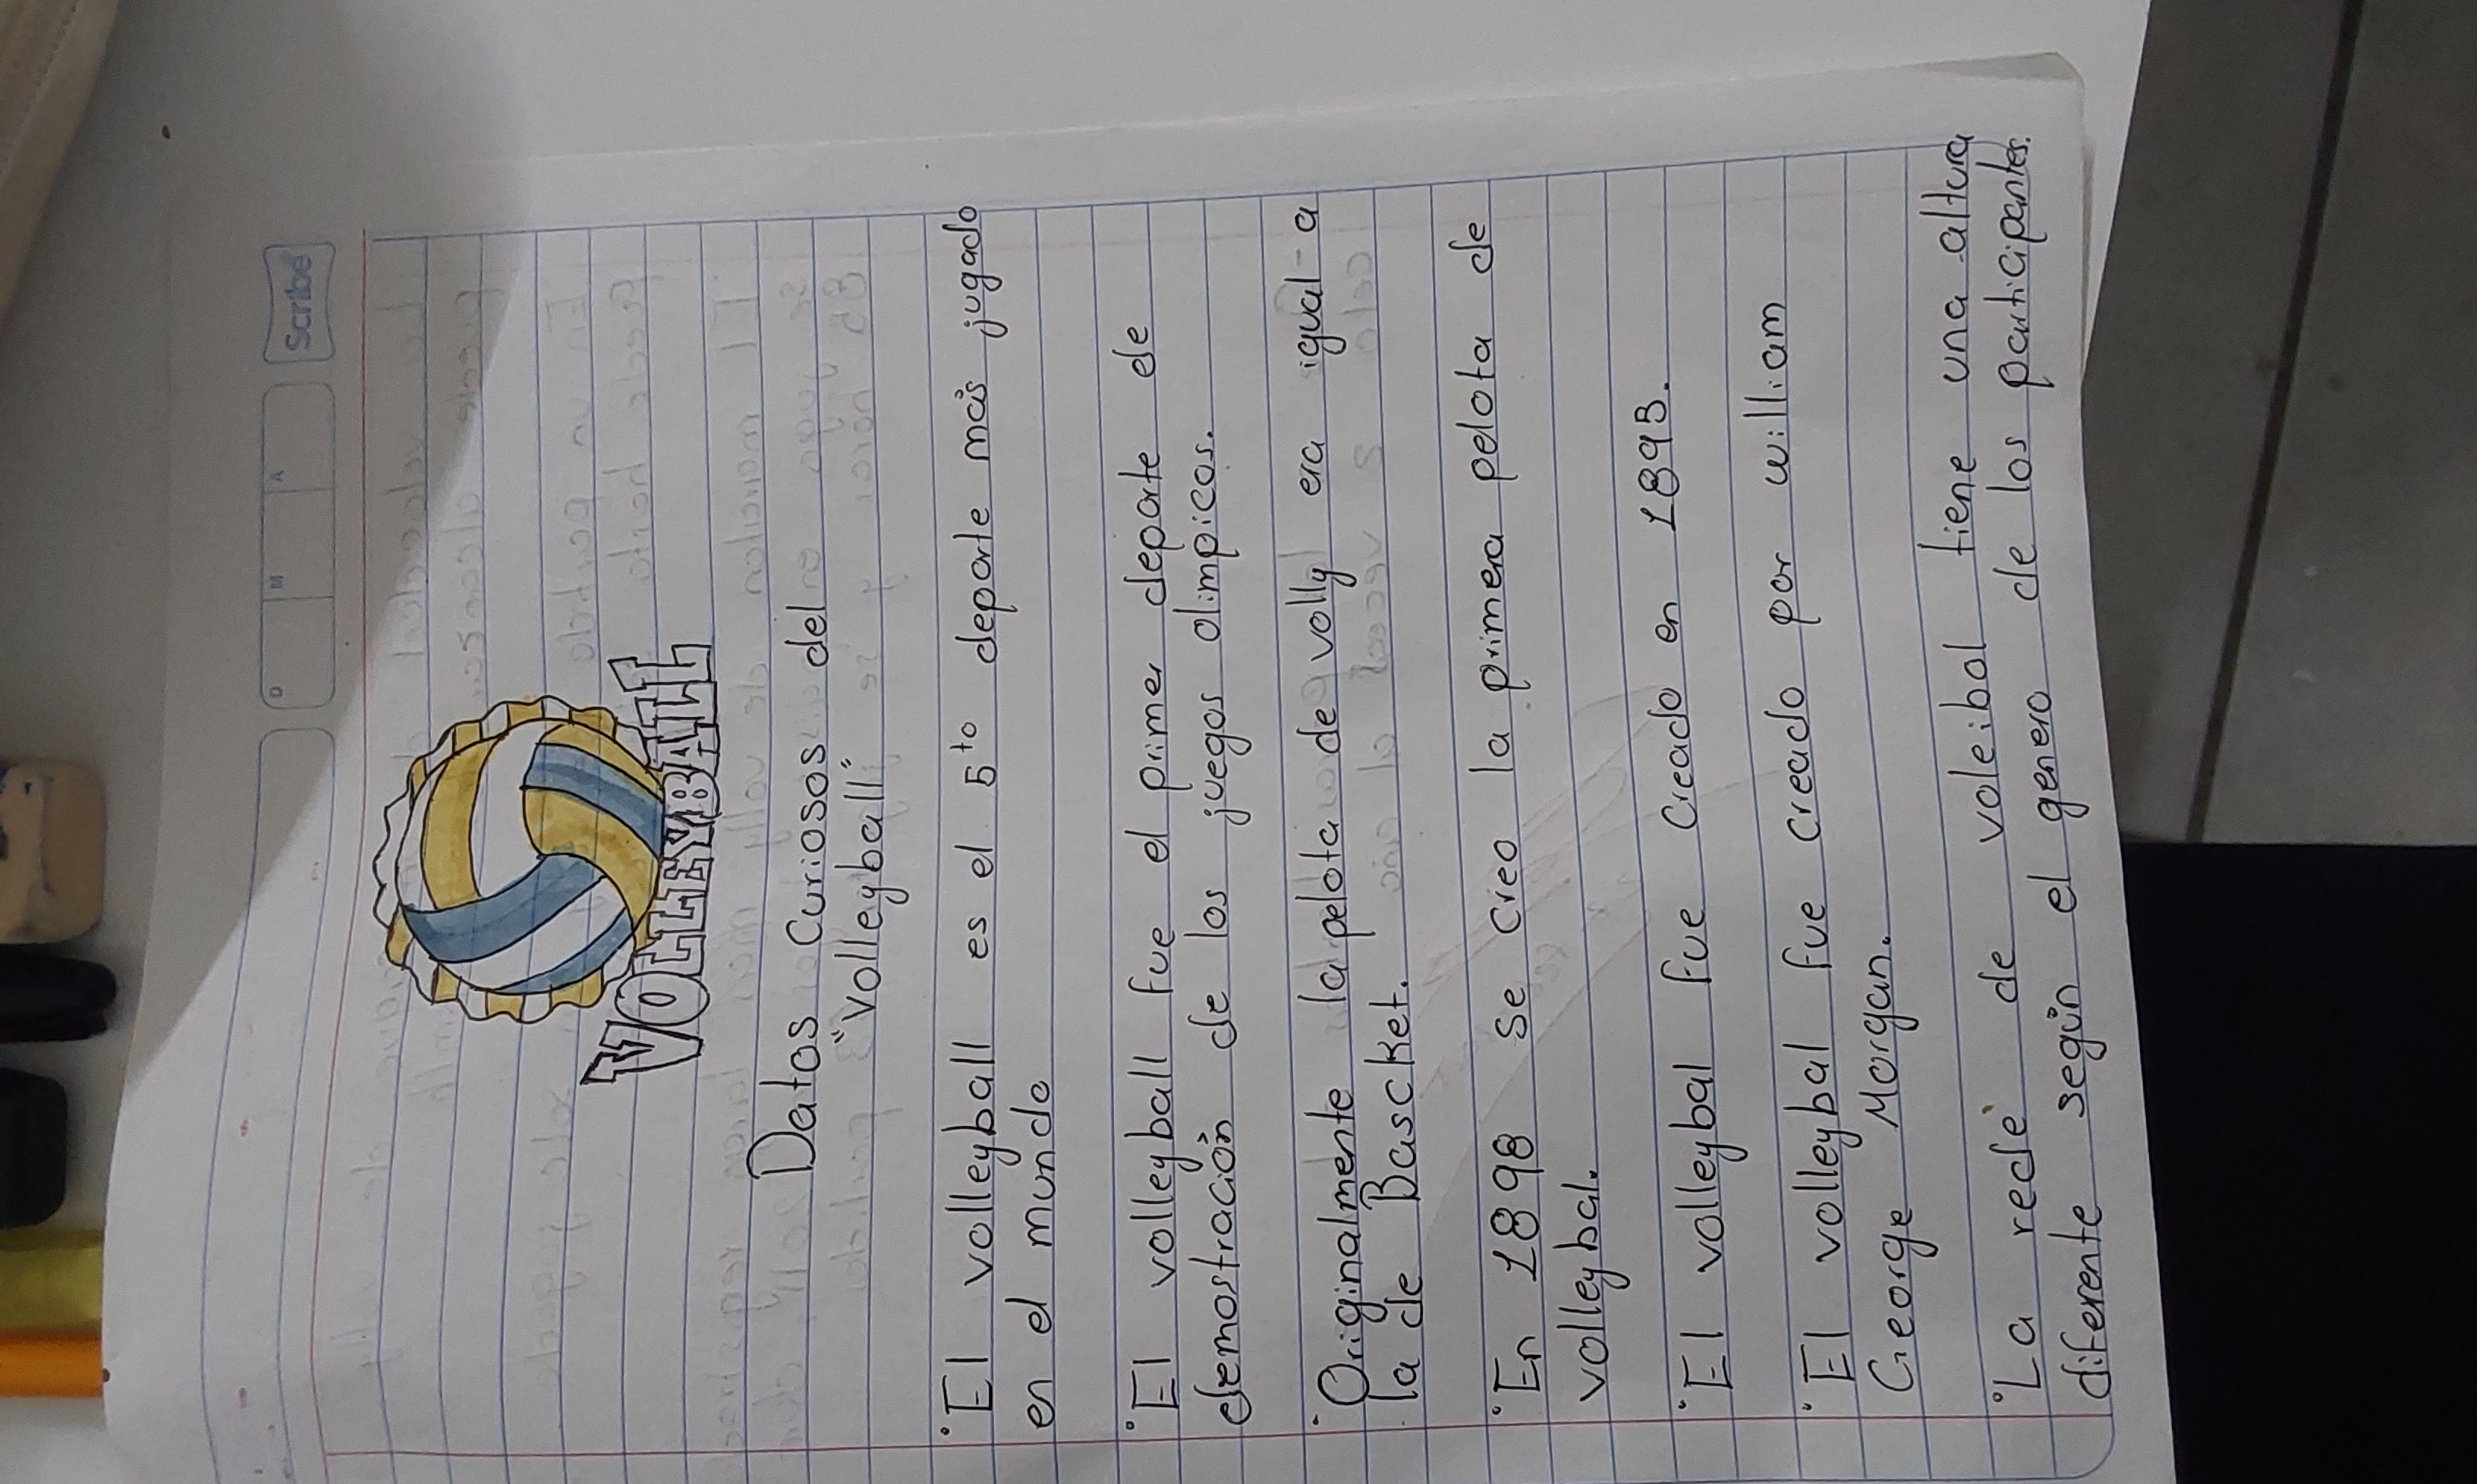 Scribe
D M A
VOLLEYBALL
Datos Curiosos del
"Volleyball"
°El volleyball es el 5to deporte más jugado
en el mundo
°El volleyball fue el primer deporte de
demostración de los juegos olimpicos.
°Originalmente la pelota de volly era igual a
la de Bascket.
°En 1898 se creo la primera pelota de
volleybal.
°El volleybal fue creado en 1895.
°El volleybal fue creado por william
George Morgan.
°La rede de voleibol tiene una altura
diferente según el genero de los participantes.